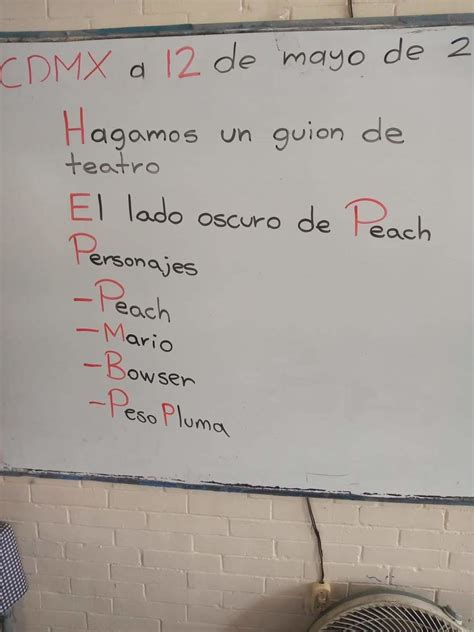 CDMX a 12 de mayo de 2
Hagamos un guion de
teatro
El lado oscuro de Peach
Personajes
-Peach
-Mario
-Bowser
-Peso Pluma